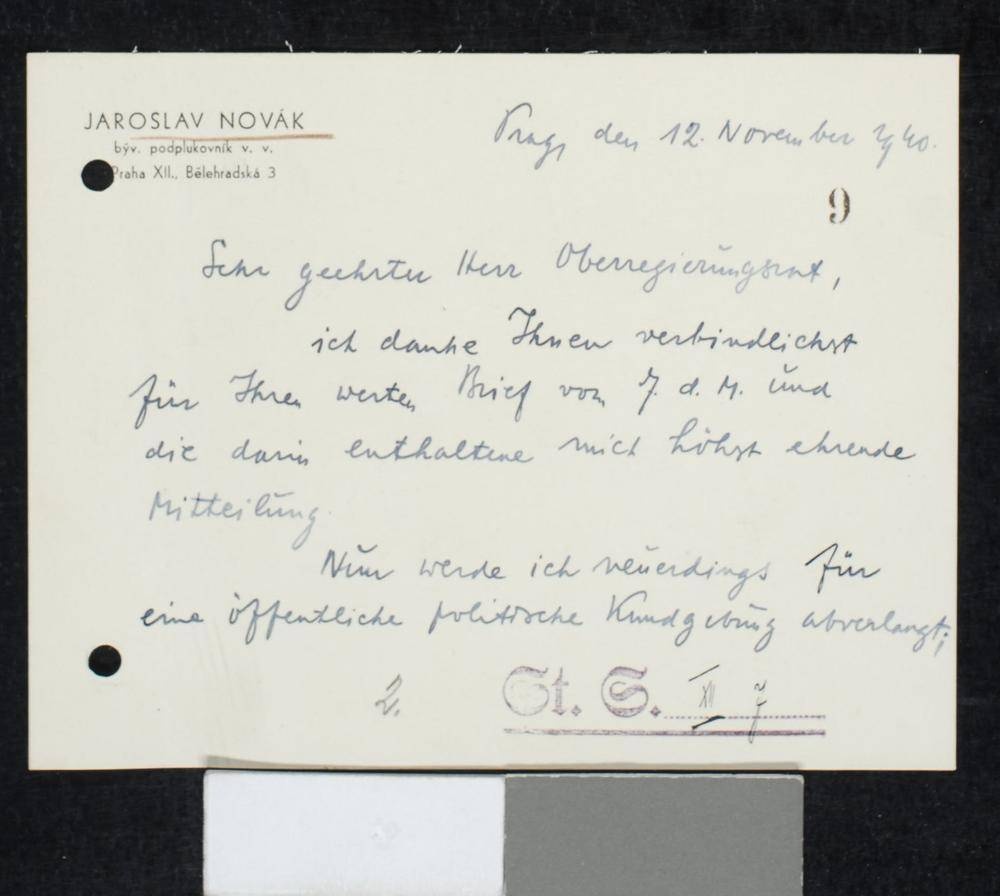 JAROSLAV NOVÁK
býv. podplukovník v. v.
Praha XII., Bělehradská 3
Prag, den 12. November 1940.
9
Sehr geehrter Herr Oberregierungsrat,
ich danke Ihnen verbindlichst
für Ihren werten Brief vom 7. d. M. und
die darin enthaltene mich höhst ehrende
Mitteilung.
Nun werde ich neuerdings für
eine öffentliche politische Kundgebung abverlangt;
2.
St. S. XII 7